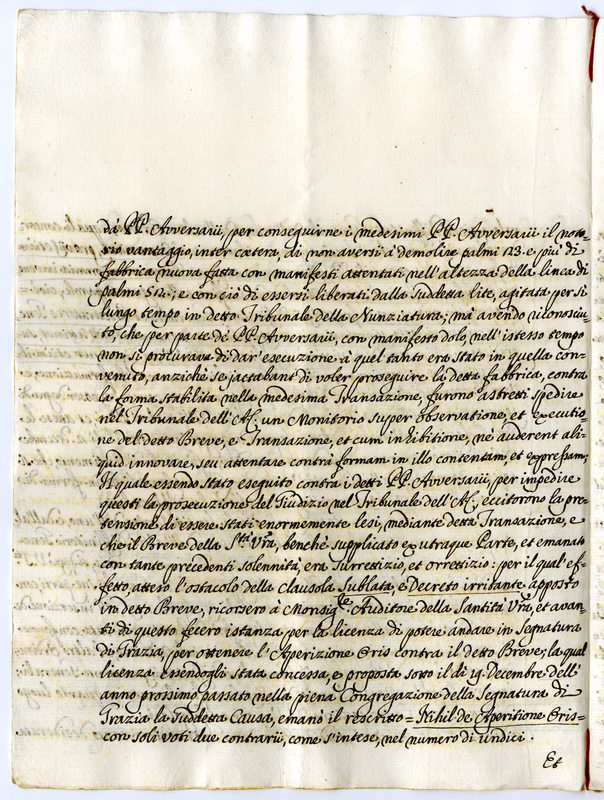 dà PP. Avversarii, per conseguirne i medesimi PP. Avversarii il noto=
rio vantaggio, inter cœtera, di non aversi à demolire palmi 123. e più di
fabbrica nuova fatta con manifesti attentati nell'altezza della linea di
palmi 512.; e con ciò di essersi liberati dalla suddetta lite, agitata per sì
lungo tempo in detto Tribunale della Nunziatura; mà avendo riconosciu=
to, che per parte de' PP. Avversarii, con manifesto dolo, nell'istesso tempo
non si procurava di dar' esecuzione à quel tanto era stato in quella con=
venuto, anziché se jactabant di voler proseguire la detta fabbrica, contra
la forma stabilita nella medesima Transazione, furono astretti spedire
nel Tribunale dell'A.C. un Monitorio super observatione, et executio=
ne del detto Breve, e Transazione, et cum inhibitione, nè auderent ali=
quid innovare, seu attentare contrà formam in illo contentam, et expressam;
Il quale essendo stato eseguito contra i detti PP. Avversarii, per impedire
questi la prosecuzione del Giudizio nel Tribunale dell'A.C. eccitorono la pre=
tensione di essere stati enormemente lesi, mediante detta Transazione, e
che il Breve della S.tà V.ra, benchè supplicato ex utraque Parte, et emanato
con tante precedenti solennità, era surrettizio, et orrettizio: per il qual' ef=
fetto, atteso l'ostacolo della clausola Sublata, e Decreto irritante apposto
in detto Breve, ricorsero à Monsig.re Auditore della Santità V.ra, et avan=
ti di questo fecero istanza per la licenza di potere andare in Segnatura
di Grazia, per ottenere l'Aperizione Oris contra il detto Breve; la qual
licenza essendogli stata concessa, e proposta sotto il dì 19. Decembre dell'
anno prossimo passato nella piena Congregazione della Segnatura di
Grazia la suddetta Causa, emanò il rescritto = Nihil de Aperitione Oris =
con soli voti due contrarii, come s'intese, nel numero di undici.
Et